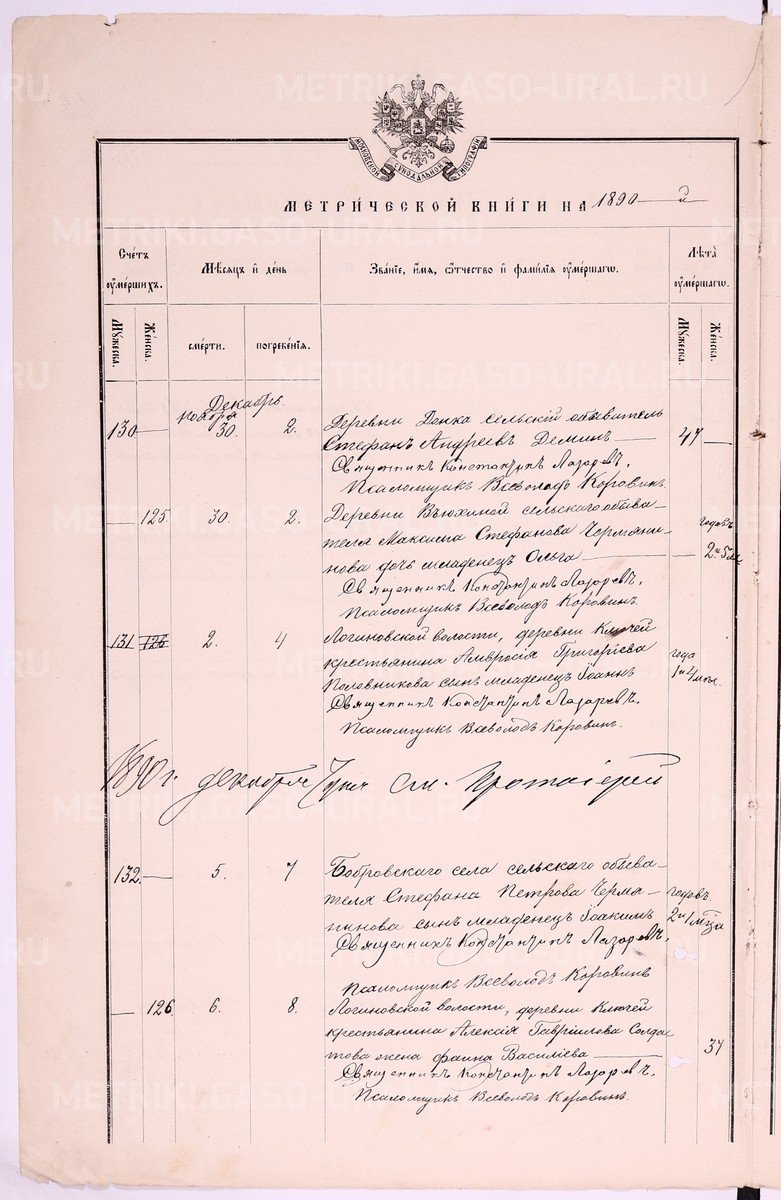 МЕТРИ́ЧЕСКОЙ КНИ́ГИ НА 1890 й
Сче́тъ ᲂу҆ме́ршихъ.
Мѣ́сяцъ и҆ де́нь
Зва́нїе, и҆́мя, ѻ҆́тчество и҆ фами́лїя ᲂу҆ме́ршагѡ.
Лѣ́та ᲂу҆ме́ршагѡ.
Мꙋ́жеска.
Же́нска.
сме́рти.
погребе́нїя.
Мꙋ́жеска.
Же́нска.
Декабрь.
ноября
130 — 30. 2. Деревни Донка сельскій обыватель
Стефанъ Андреевъ Деминъ — 47 —
Священникъ Константинъ Лазаревъ.
Псаломщикъ Всеволодъ Коровинъ.
— 125. 30. 2. Деревни Вьюхиной сельскаго обыва-
теля Максима Стефанова Чермяни-
нова дочь младенецъ Ольга — — годовъ 2 и 5 м.
Священникъ Константинъ Лазаревъ.
Псаломщикъ Всеволодъ Коровинъ.
131 126 2. 4 Логиновской волости, деревни Ключей
крестьянина Амвросія Григоріева
Половникова сынъ младенецъ Іоаннъ года 1 и 4 мца.
Священникъ Константинъ Лазаревъ.
Псаломщикъ Всеволодъ Коровинъ.
1890 г. декабря Протоіерей
132. — 5. 7 Бобровскаго села сельскаго обыва-
теля Стефана Петрова Чермя-
нинова сынъ младенецъ Іоакимъ годовъ. 2 и 1 мца
Священникъ Константинъ Лазаревъ.
Псаломщикъ Всеволодъ Коровинъ
— 126. 6. 8. Логиновской волости, деревни Ключей
крестьянина Алексія Гавріилова Солда-
това жена Фаина Василіева — 37
Священникъ Константинъ Лазаревъ.
Псаломщикъ Всеволодъ Коровинъ.
METRIKI.GASO-URAL.RU